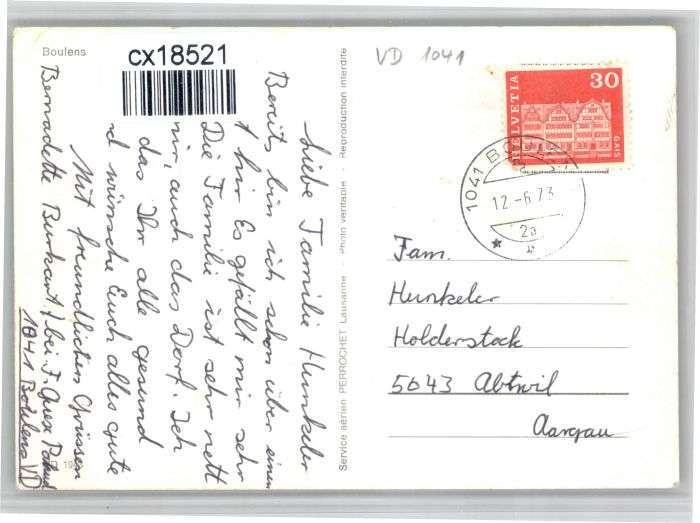 Boulens
cx18521
VD 1041
Liebe Familie Hunkeler
Bereits bin ich schon über einen
t hir Es gefällt mir sehr
Die Familie ist sehr nett
mir, auch das Dorf. Ich
das Ihr alle gesund
d wünsche Euch alles gute
Mit freundlichen Grüssen
Bernadette Burkart bei F.
1041 Boulens VD
Service aérien PERROCHET Lausanne - Photo véritable - Reproduction interdite
HELVETIA
30
GAIS
1041 BOULENS
12.-6.73
Fam.
Hunkeler
Holderstock
5643 Abtwil
Aargau